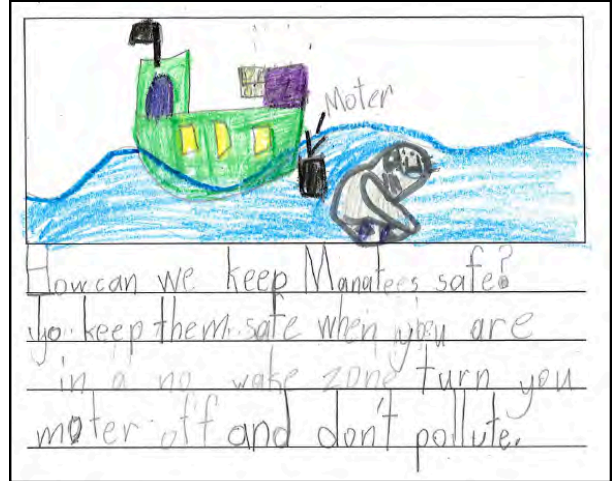 Moter
How can we keep Manatees safe?
To keep them safe when you are
in a no wake zone turn you
moter off and don't pollute.